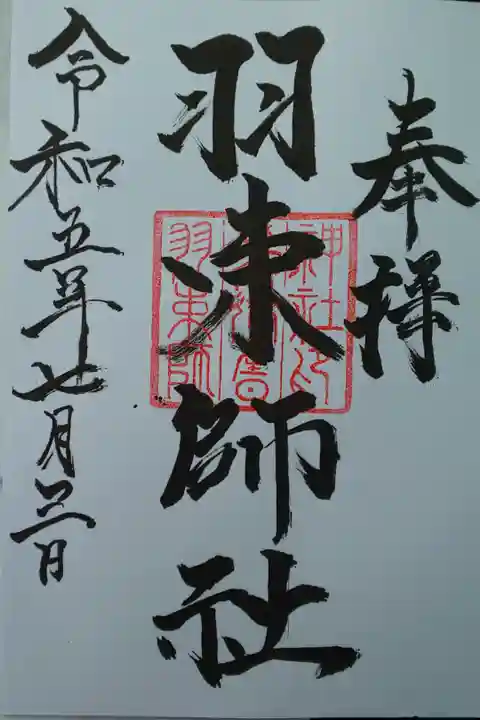 奉拝
羽束師社
令和五年七月三日
神社印
羽束師